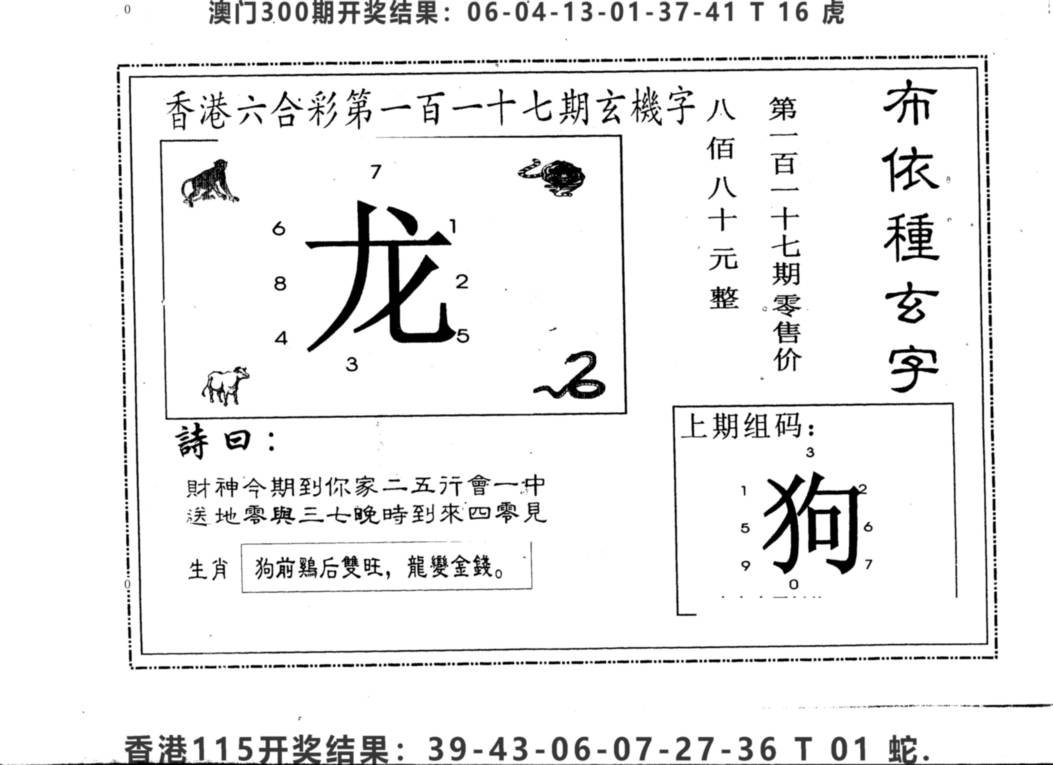 澳门300期开奖结果：06-04-13-01-37-41 T 16 虎
香港六合彩第一百一十七期玄機字
布依種玄字
第一百一十七期零售价
八佰八十元整
7
6
1
龙
8
2
4
5
3
詩曰：
財神今期到你家二五行會一中
送地零與三七晚時到來四零見
生肖
狗前鷄后雙旺，龍變金錢。
上期组码：
3
1
2
狗
5
6
9
7
0
香港115开奖结果：39-43-06-07-27-36 T 01 蛇.